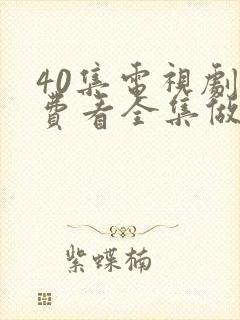 40集電視劇
費看全集做
紫蝶楠